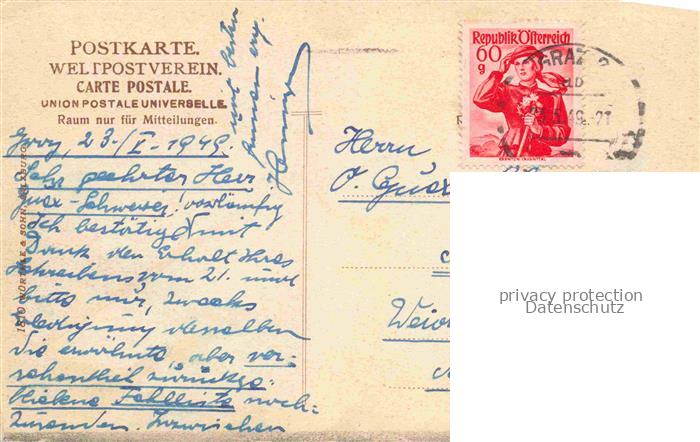 POSTKARTE.
WELTPOSTVEREIN.
CARTE POSTALE.
UNION POSTALE UNIVERSELLE.
Raum nur für Mitteilungen.
Graz, 23./I-1949.
Sehr geehrter Herr
Gusx-Schweizer! vorläufig
Ich bestätige mit
Dank den Erhalt Ihres
Schreibens vom 21. und
bitte nur, zwecks
Erledigung desselben
die erwähnte, aber ver-
sehentlich zurückge-
bliebene Fehlliste noch-
zusenden. Inzwischen
und besten
Herrn
O.
Republik Österreich
60
g
KÄRNTEN LAVANTTAL
GRAZ 2
privacy protection
Datenschutz